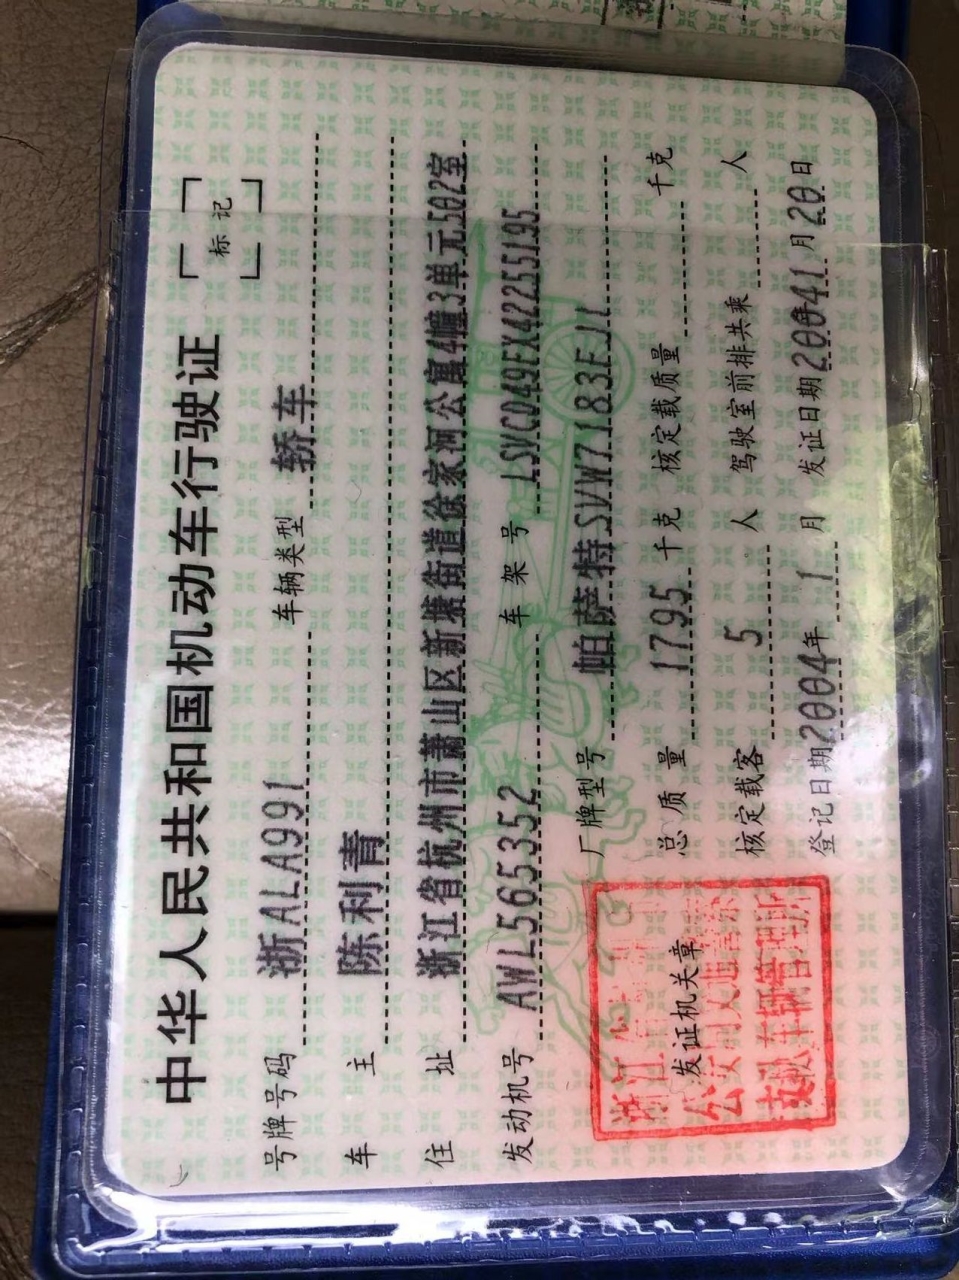 中华人民共和国机动车行驶证
标记
号牌号码 浙ALA991 车辆类型 轿车
车主 陈利青
住址 浙江省杭州市萧山区新塘街道徐家河公寓4幢3单元502室
发动机号 AWL565352 车架号 LSVCQ49FX42255195
厂牌型号 帕萨特SVW7183FJI
总质量 1795 千克 核定载质量 千克
核定载客 5 人 驾驶室前排共乘 人
登记日期 2004年 1 月 发证日期 月 20日
发证机关章
浙江
车辆管理所